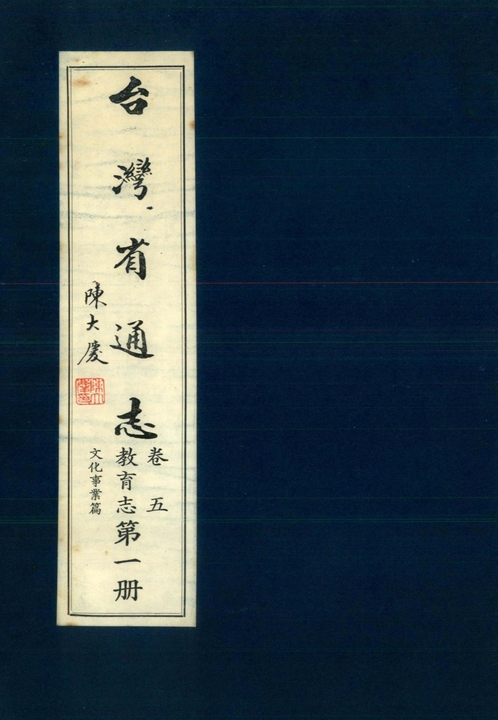 台灣省通志
卷五
教育志第一册
文化事業篇
陳大慶